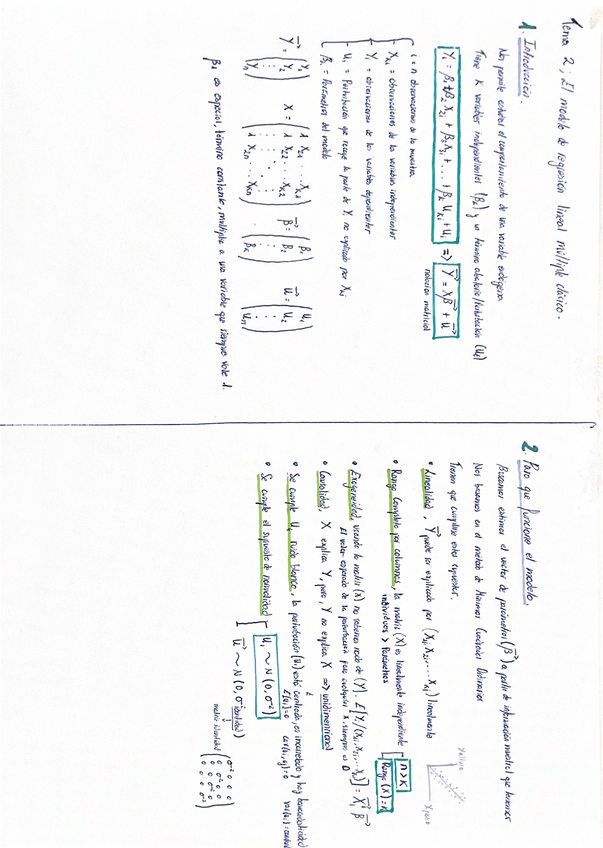 Tema 2: El modelo de regresión lineal múltiple clásico.
1. Introducción.
Nos permite estudiar el comportamiento de una variable endógena.
Tiene K variables independientes (βₖ) y un término aleatorio/perturbación (Uₜ)
Yᵢ = β₁ + β₂ X₂ᵢ + β₃ X₃ᵢ + ... + βₖ Uₖᵢ + Uᵢ => Y = Xβ + U
notación matricial
i = n observaciones de la muestra
Xₖᵢ = observaciones de las variables independientes
Yᵢ = observaciones de las variables dependientes
Uᵢ = Perturbación que recoge la parte de Yᵢ no explicada por Xₖᵢ
βₖ = Parámetros del modelo
Y = (Y₁ Y₂ ⋮ Yₙ) X = (1 X₂₁ ... Xₖ₁ 1 X₂₂ ... Xₖ₂ ⋮ 1 X₂ₙ ... Xₖₙ) β = (β₁ β₂ ⋮ βₖ) U = (U₁ U₂ ⋮ Uₙ)
β₁ es especial, término constante, multiplica a una variable que siempre vale 1.
2. Para que funcione el modelo.
Buscamos estimar el vector de parámetros (β) a partir de información muestral que tenemos
Nos basamos en el método de Mínimos Cuadrados Ordinarios
Tienen que cumplirse estos supuestos.
• Linealidad, Y puede ser explicado por (X₁ᵢ X₂ᵢ, ... Xₖᵢ) linealmente
X peso
• Rango completo por columnas, la matriz (X) es linealmente independiente n > K
individuos > Parámetros Rango (X) = K
• Exogeneidad, usando la matriz (X) no sabemos nada de (Y). E[Yᵢ/(X₁ᵢ, X₂ᵢ, ... Xₖᵢ)] = Xᵢ β
El valor esperado de la perturbación para cualquier X, siempre es 0
• Causalidad, X explica Y, pero, Y no explica X => unidireccional
• Se cumple Uᵢ ruido blanco, la perturbación (Uᵢ) está centrada, es incorrelada y hay homocedasticidad
E[Uᵢ]=0 cov(Uᵢ,Uⱼ)=0
• Se cumple el supuesto de normalidad Uᵢ ~ N(0, σ²)
U ~ N(0, σ² identidad)
matriz identidad (σ² 0 0 0 0 σ² 0 0 0 0 σ² 0 0 0 0 σ²)